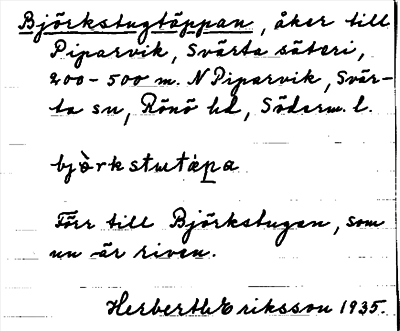 Björkstugtäppan, åker till
Piparvik, Svärta säteri,
200-500 m. N Piparvik, Svär-
ta sn, Rönö hd, Söderm. l.
Förr till Björkstugan, som
nu är riven.
Herbert Eriksson 1935.